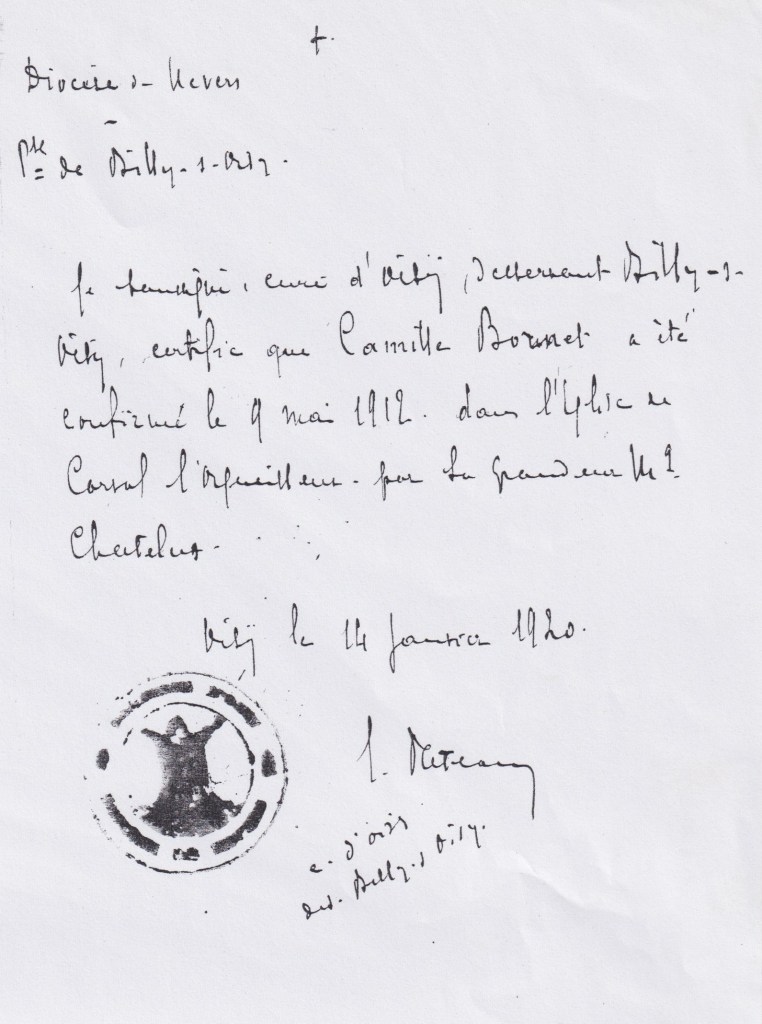 +.
Diocèse de Nevers
Psse de Billy-s-Oisy.
Je soussigné, curé d'Oisÿ, desservant Billy-s-
Oisy, certifie que Camille Bonnet a été
confirmé le 9 mai 1912. dans l'Eglise de
Corvol l'Orgueilleux. par Sa Grandeur Mgr
Chatelus.
Oisÿ le 14 Janvier 1920.
c. d'Oisy
des. Billy-s Oisy.